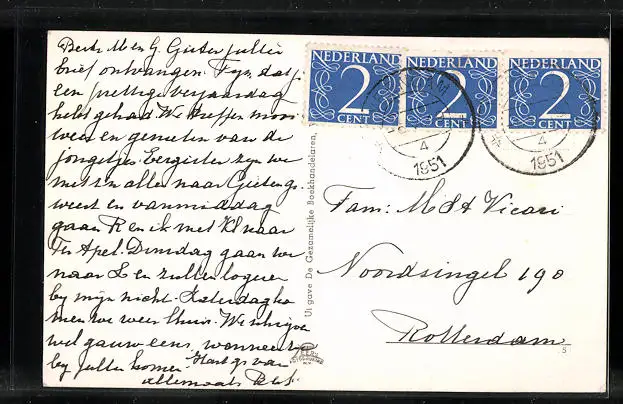 Beste M en G. Gister jullie
brief ontvangen. Fijn dat je
een prettige verjaardag
hebt gehad. We treffen mooi
weer en genieten van de
jongetjes. Eergister zijn we
met z'n allen naar
geweest en vanmiddag
gaan R en ik met Kl naar
Ter Apel. Dinsdag gaan we
naar Z en zullen logeren
bij mijn nicht. Zaterdag ko
men we weer thuis. We schrijven
wel gauw eens, wanneer we
bij jullie komen. Hart. gr. van
allemaal
NEDERLAND
2
CENT
NEDERLAND
2
CENT
NEDERLAND
2
CENT
4
1951
4
1951
Uitgave De Gezamelijke Boekhandelaren,
Fam: Vicari
Noordsingel 190
Rotterdam